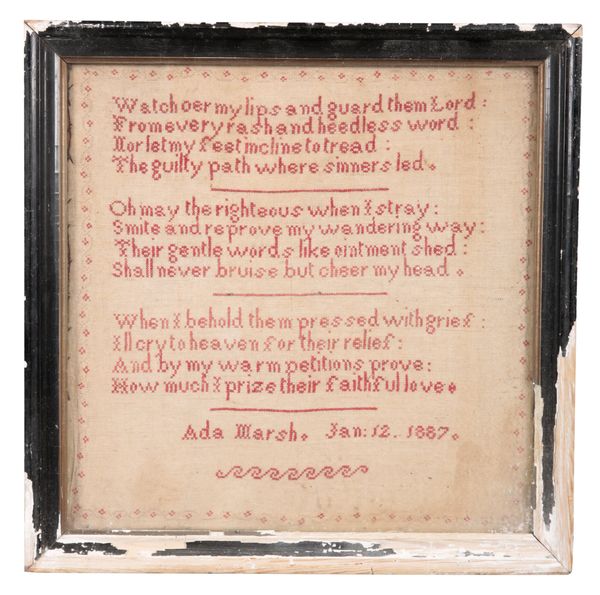 Watch oer my lips and guard them Lord :
From every rash and heedless word :
Nor let my feet incline to tread :
The guilty path where sinners led .
Oh may the righteous when I stray :
Smite and reprove my wandering way :
Their gentle words like ointment shed :
Shall never bruise but cheer my head .
When I behold them pressed with grief :
Ill cry to heaven for their relief :
And by my warm petitions prove :
How much I prize their faithful love .
Ada Marsh. Jan: 12. 1887.